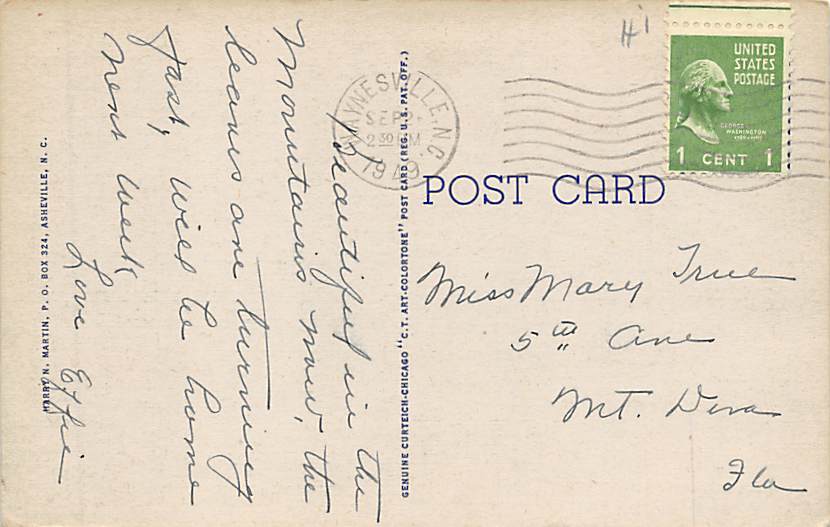 H1
UNITED
STATES
POSTAGE
GEORGE
WASHINGTON
1 CENT 1
WAYNESVILLE, N.C.
SEP 2
2 30 PM
POST CARD
Beautiful in the
Mountains now, the
leaves are turning
fast, will be home
next week
Love Effie
Miss Mary True
5th Ave
Mt. Dora
Fla
GENUINE CURTEICH-CHICAGO "C.T. ART-COLORTONE" POST CARD (REG. U.S. PAT. OFF.)
HARRY N. MARTIN, P. O. BOX 324, ASHEVILLE, N. C.